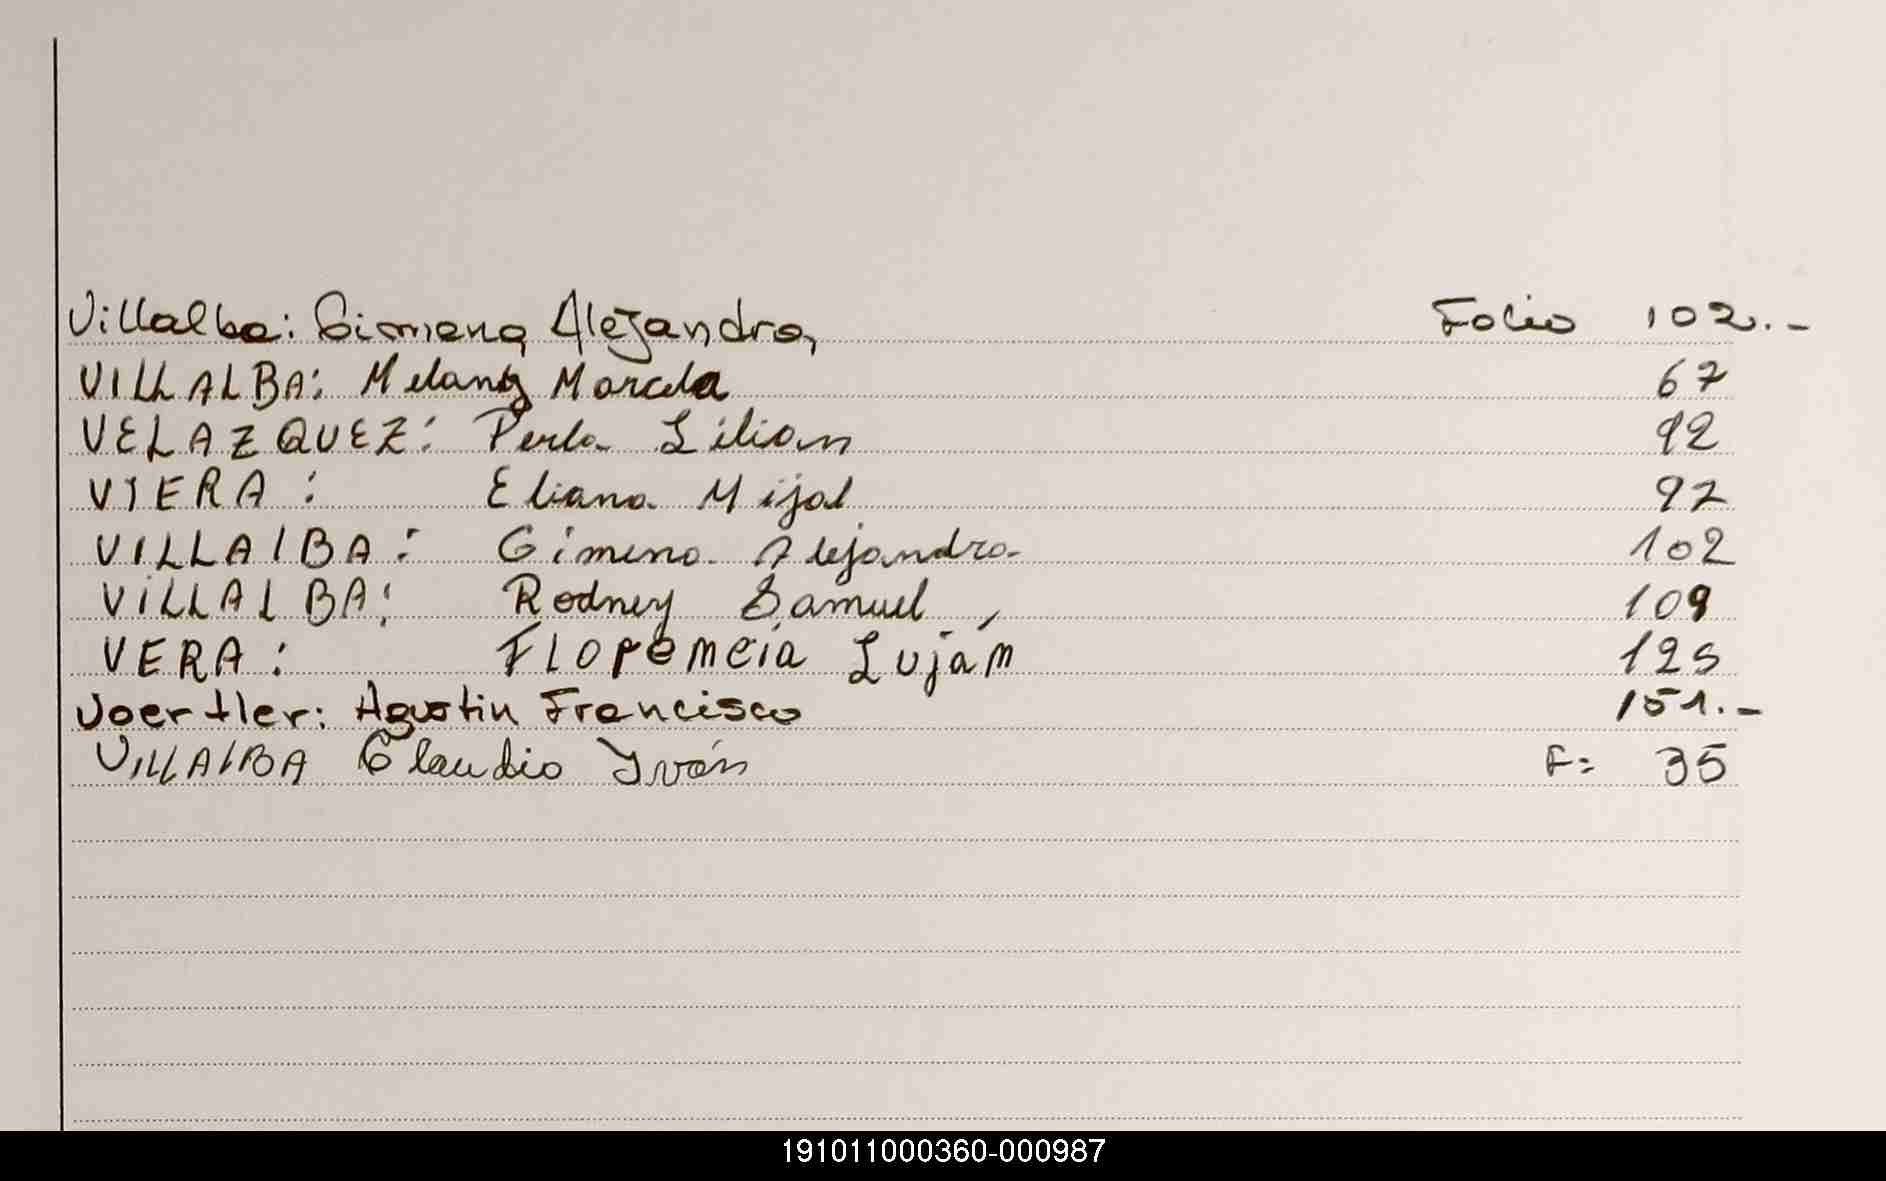 Villalba: Gimena Alejandra, Folio 102.-
VILLALBA: Melany Marcela 67
VELAZQUEZ: Perla Lilian 92
VIERA: Eliana Mijal 97
VILLAlBA: Gimena Alejandra 102
VILLALBA: Rodney Samuel, 109
VERA: FLOREMCIA Luján 125
Voertler: Agustin Francisco 151.-
VILLALBA Claudio Iván F= 35
191011000360-000987